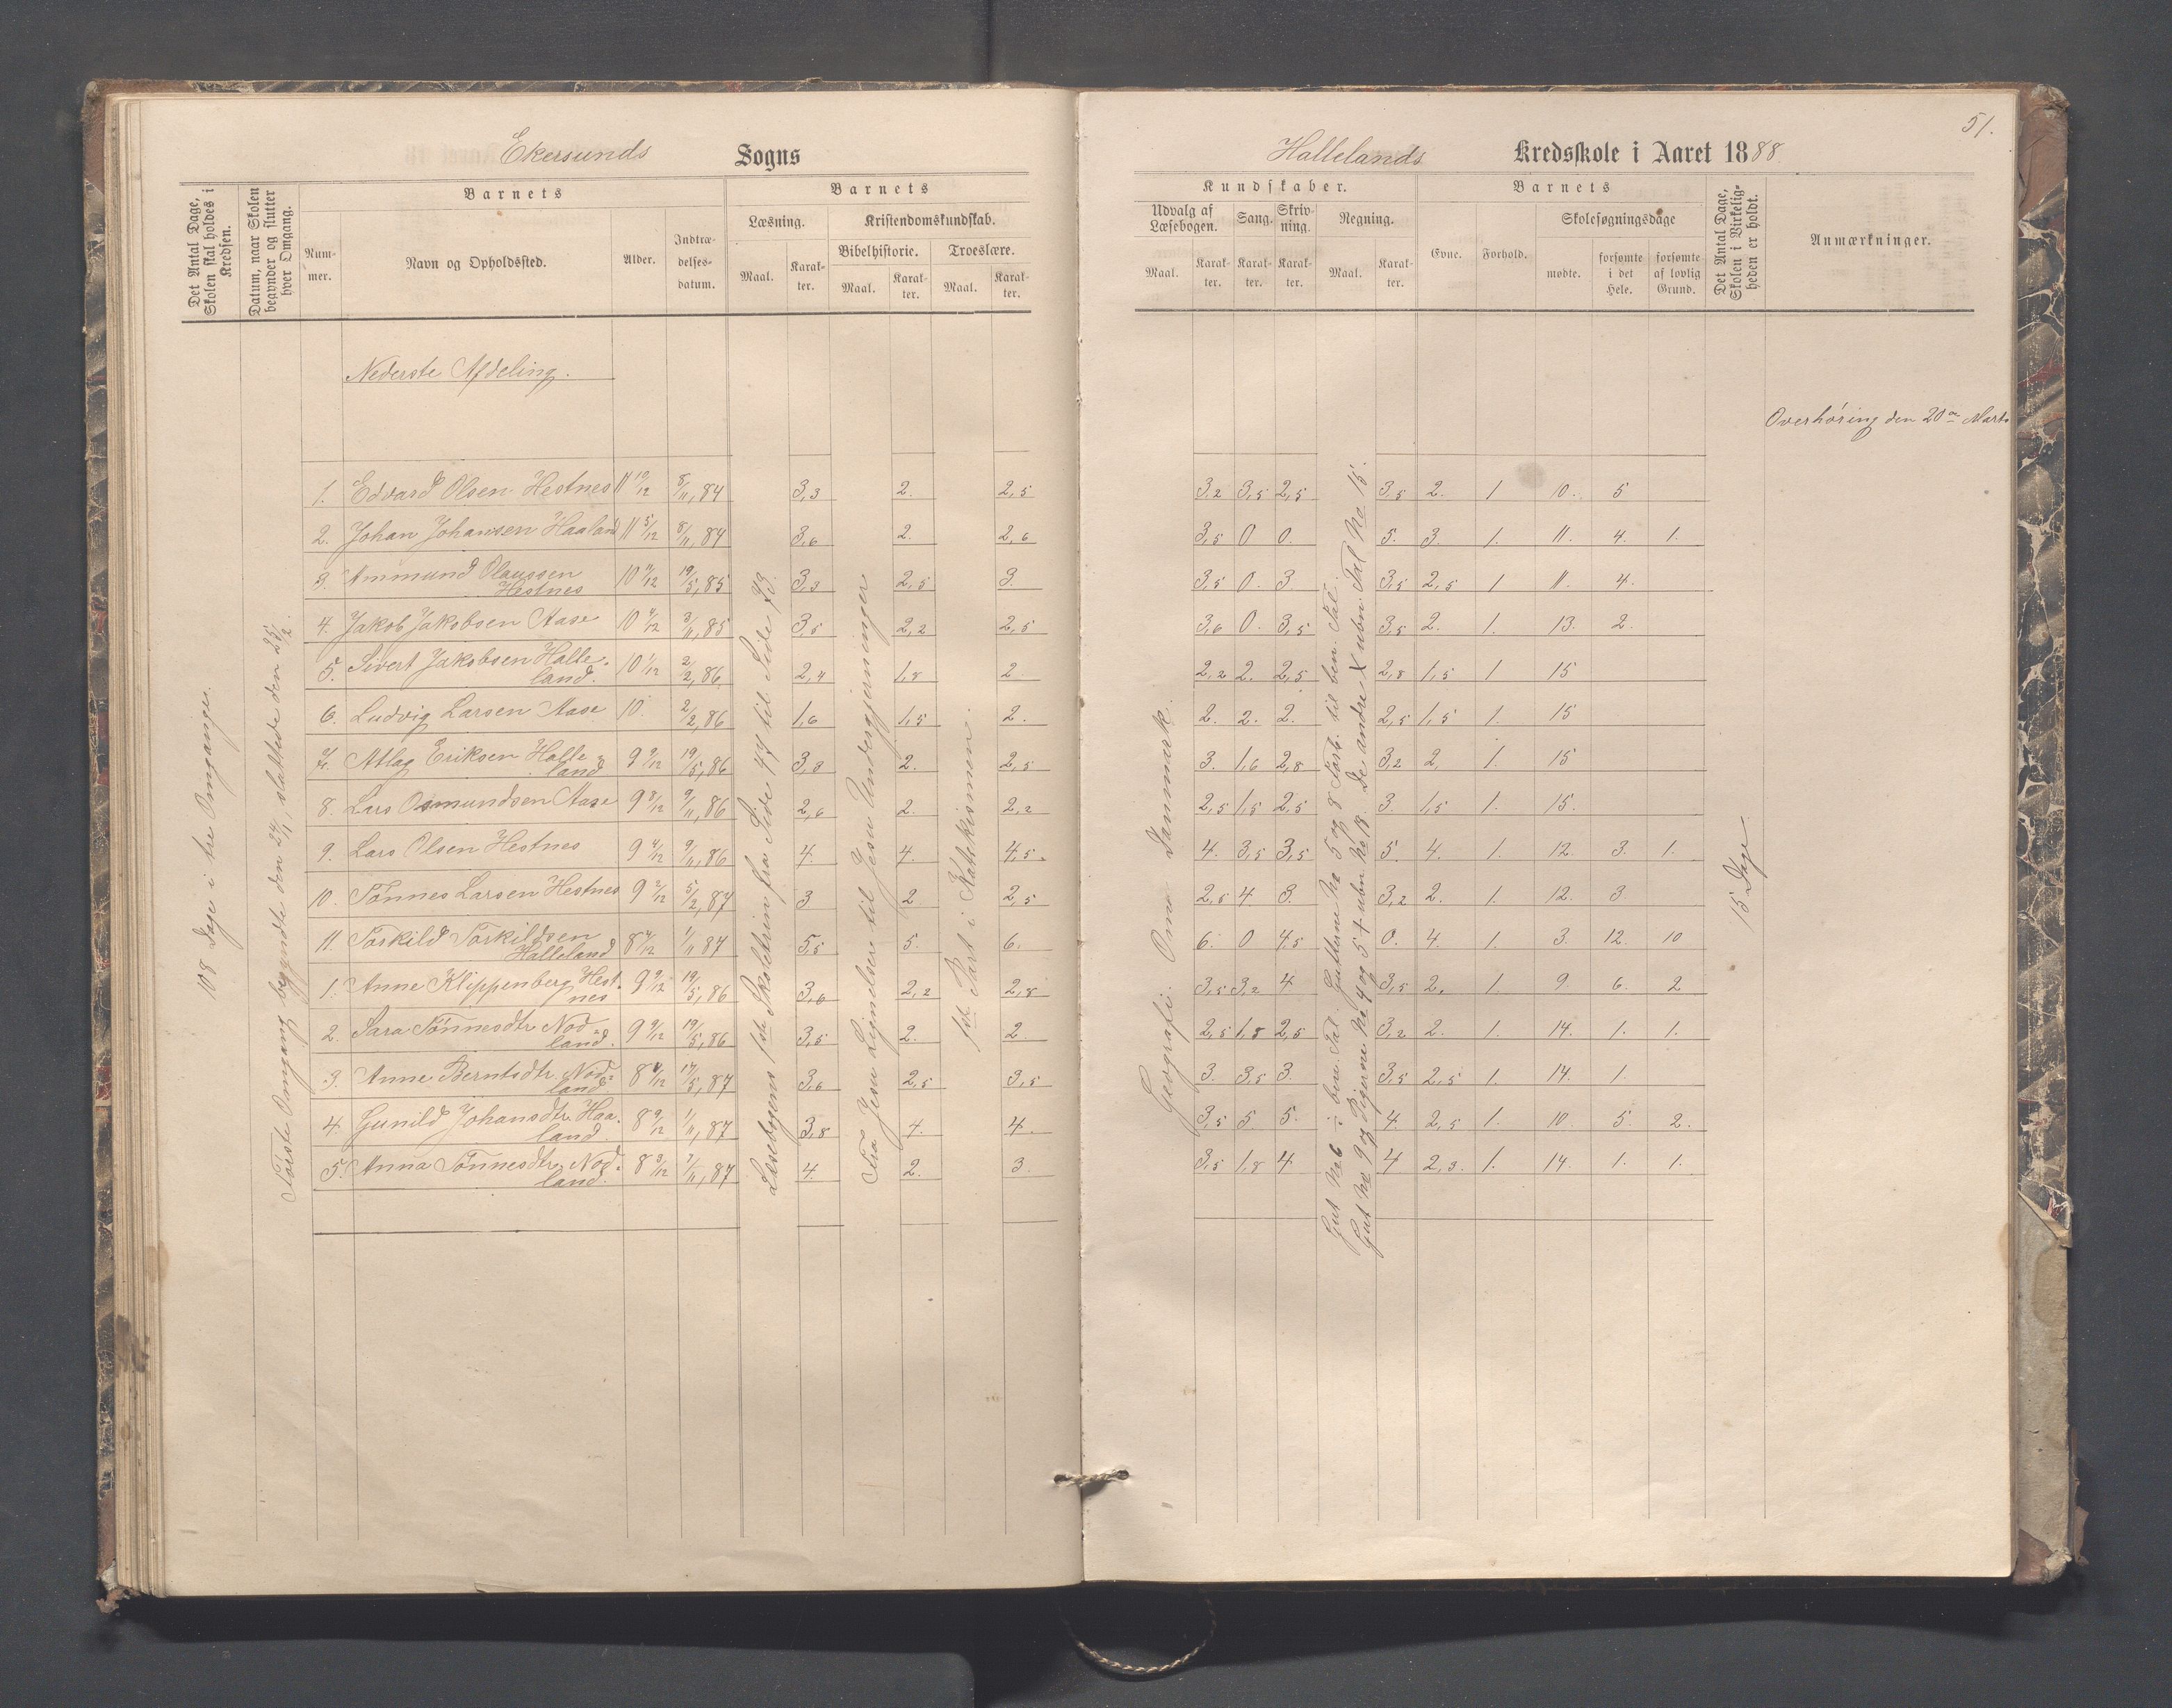 51.
Ekersunds Sogns
Hallelands Kredsskole i Aaret 1888
Det Antal Dage, Skolen skal holdes i Kredsen.
Datum, naar Skolen begynder og slutter hver Omgang.
Barnets
Num-mer.
Navn og Opholdssted.
Alder.
Indtræ-delses-datum.
Barnets
Læsning.
Maal.
Karak-ter.
Kristendomskundskab.
Bibelhistorie.
Maal.
Karak-ter.
Troeslære.
Maal.
Karak-ter.
Kundskaber.
Udvalg af Læsebogen.
Maal.
Karak-ter.
Sang.
Karak-ter.
Skriv-ning.
Karak-ter.
Regning.
Maal.
Karak-ter.
Barnets
Evne.
Forhold.
Skolesøgningsdage
mødte.
forsømte i det Hele.
forsømte af lovlig Grund.
Det Antal Dage, Skolen i Virkelig-heden er holdt.
Anmærkninger.
Nederste Afdeling.
Overhøring den 20de Marts
108 Dage i tre Omganger.
Første Omgang begyndte den 24/1, sluttede den 25/2.
Læsebogens 1ste Skoletrin fra Side 44 til Side 73.
Fra Jesu Lignelser til Jesu Undergjerninger
1ste Part i Katekismen.
Geografi. Om Danmark.
Gut No 6 i ben. Tal. Gutterne No 5 og 8 Forb. til ben. Tal.
Gut No 9 og Pigerne No 4 og 5 + ubn. No 18. De andre X ubn. Tal No 15.
15 Dage
1. Edvard Olsen Hestnes 11 10/12 8/11, 84 3,3 2. 2,5 3,2 3,5 2,5 3,5 2. 1 10. 5
2. Johan Johansen Haaland 11 5/12 8/11, 84 3,6 2. 2,6 3,5 0 0. 5. 3. 1. 11. 4. 1.
3. Ammund Olaussen Hestnes 10 9/12 19/5, 85 3,3 2,5 3. 3,5 0. 3. 3,5 2,5 1 11. 4.
4. Jakob Jakobsen Aase 10 4/12 3/11, 85 3,5 2,2 2,5 3,6 0. 3,5 3,5 2. 1. 13. 2.
5. Sivert Jakobsen Halleland. 10 1/12 2/2, 86 2,4 1,8 2 2,2 2. 2,5 2,8 1,5 1 15
6. Ludvig Larsen Aase 10. 2/2, 86 1,6 1,5 2. 2. 2. 2. 2,5 1,5 1. 15
7. Atlag Eriksen Halleland 9 9/12 19/5, 86 3,3 2. 2,5 3. 1,6 2,8 3,2 2. 1. 15
8. Lars Osmundsen Aase 9 8/12 9/11, 86 2,6 2. 2,2 2,5 1,5 2,5 3. 1,5 1. 15.
9. Lars Olsen Hestnes 9 4/12 9/11, 86 4. 4. 4,5. 4. 3,5 3,5 5. 4. 1. 12. 3. 1.
10. Tønnes Larsen Hestnes 9 2/12 5/2, 87 3 2 2,5 2,5 4. 3. 3,2 2. 1. 12. 3
11. Torkild Torkildsen Halleland 8 4/12 1/11 87 5,5 5. 6. 6. 0 4,5 0. 4. 1. 3. 12. 10
1. Anne Klippenberg Hestnes 9 9/12 19/5, 86 3,6 2,2 2,8 3,5 3,2 4 3,5 2. 1. 9. 6. 2
2. Sara Tønnesdtr Nodland. 9 9/12 19/5, 86 3,5 2. 2. 2,5 1,8 2,5 3,2 2. 1. 14. 1. 1.
3. Anne Berntsdtr Nodland 8 4/12 17/5, 87 3,6 2,5 3,5 3. 3,5 3. 3,5 2,5 1. 14. 1.
4. Gunild Johansdtr Haaland 8 9/12 1/11, 87 3,8 4. 4. 3,5 5 5. 4. 2,5 1. 10. 5. 2.
5. Anna Tønnesdtr Nodland. 8 3/12 7/11, 87 4. 2. 3. 3,5 1,8 4 4 2,3. 1. 14 1. 1.